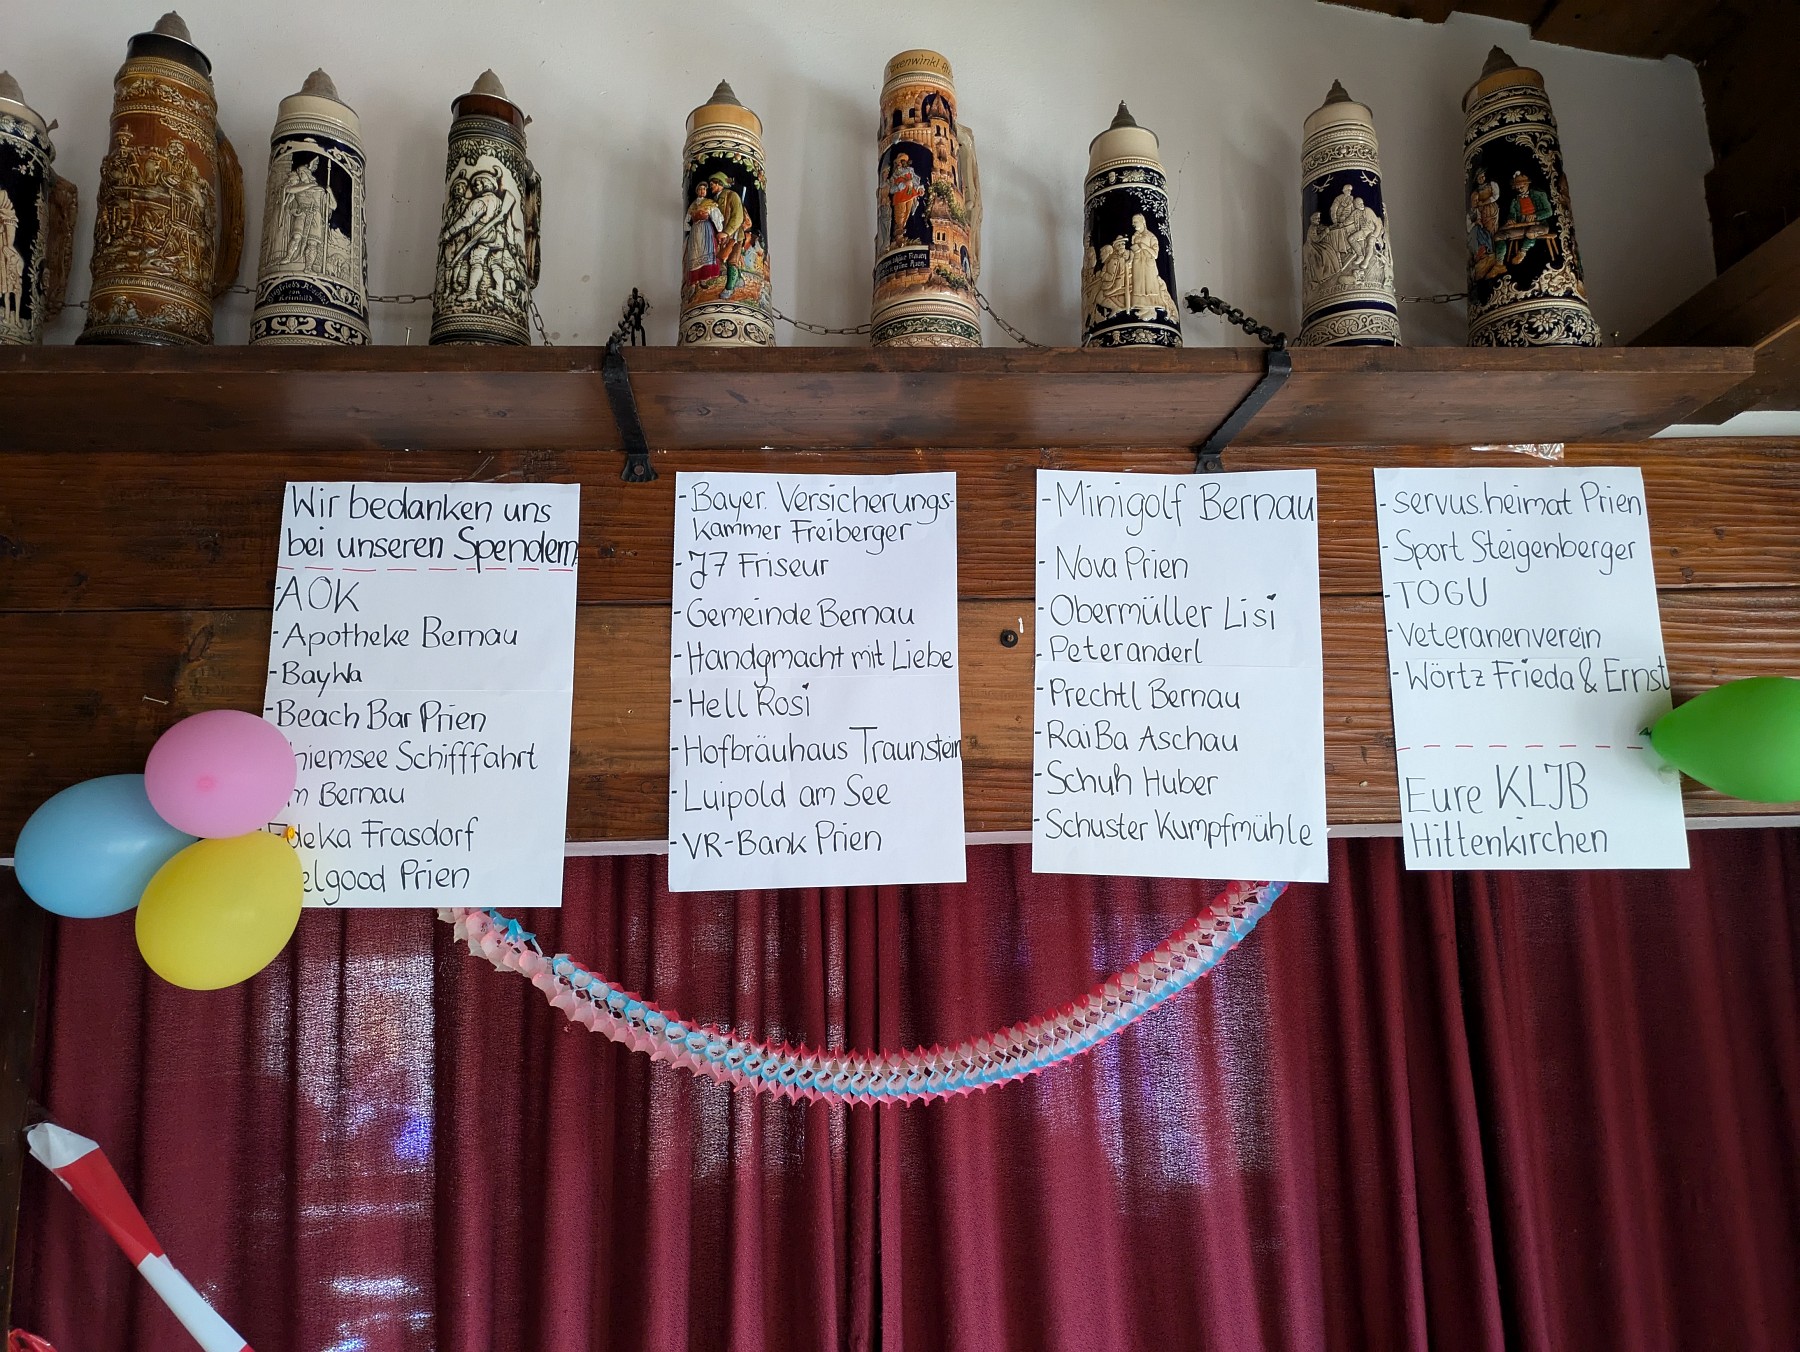 Wir bedanken uns
bei unseren Spendern
- AOK
- Apotheke Bernau
- BayWa
- Beach Bar Prien
hiemsee Schifffahrt
m Bernau
Edeka Frasdorf
elgood Prien
- Bayer. Versicherungs-
kammer Freiberger
- J7 Friseur
- Gemeinde Bernau
- Handgmacht mit Liebe
- Hell Rosi
- Hofbräuhaus Traunstein
- Luipold am See
- VR-Bank Prien
- Minigolf Bernau
- Nova Prien
- Obermüller Lisi
- Peteranderl
- Prechtl Bernau
- RaiBa Aschau
- Schuh Huber
- Schuster Kumpfmühle
- servus.heimat Prien
- Sport Steigenberger
- TOGU
- Veteranenverein
- Wörtz Frieda & Ernst
Eure KLJB
Hittenkirchen